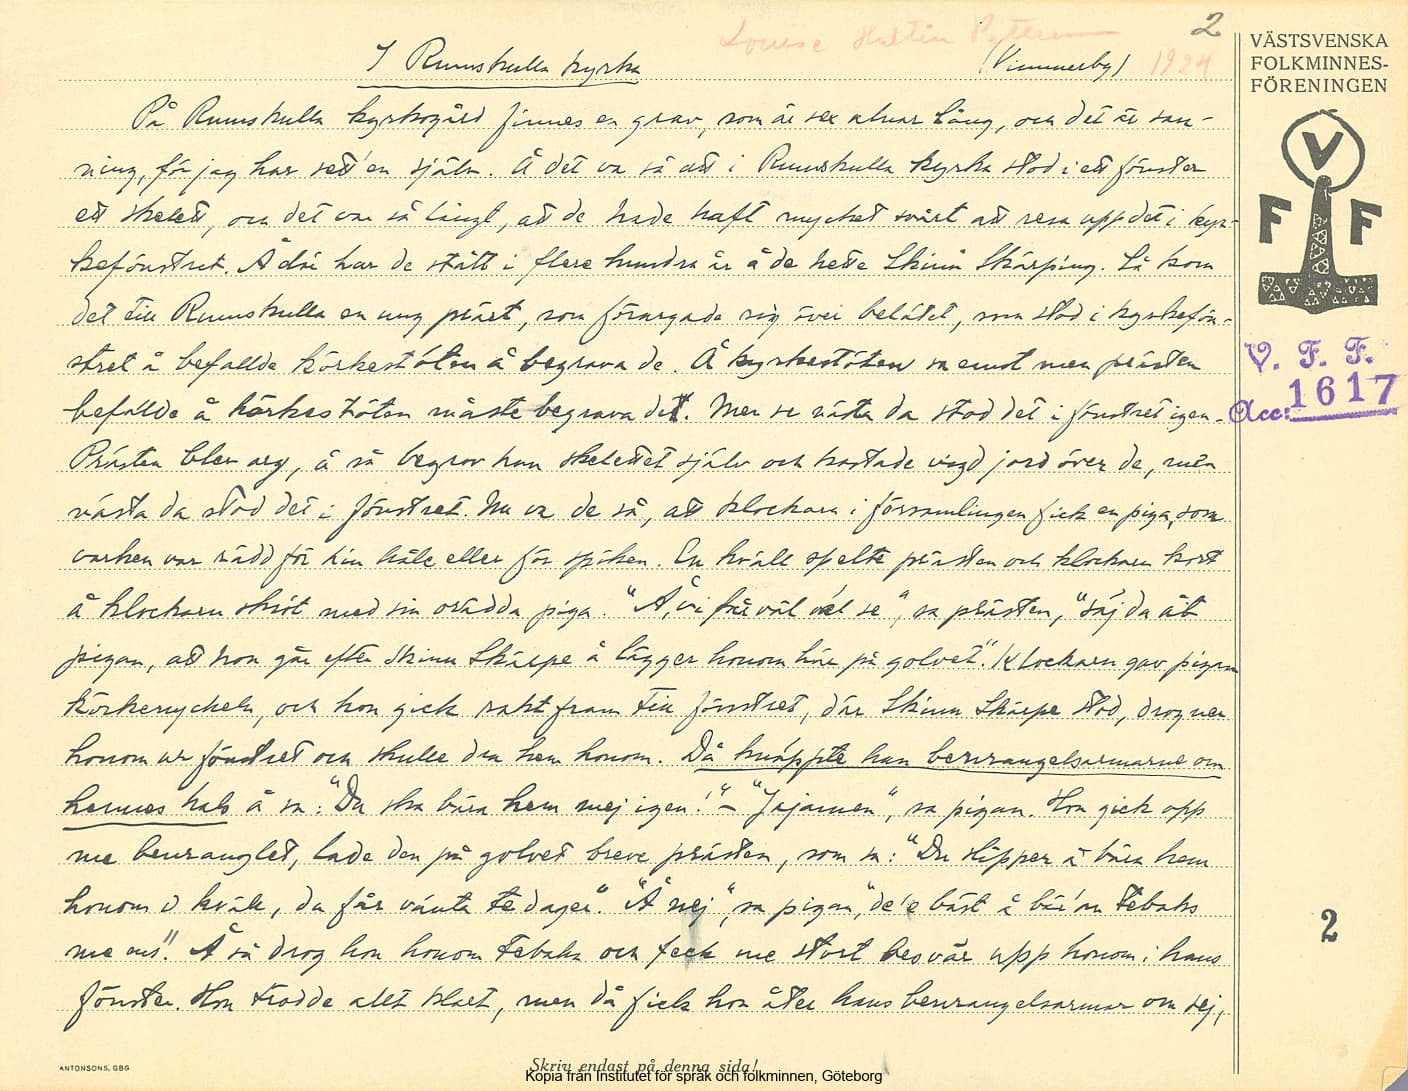 Louise Hultin Pettersson 2
I Rumskulla kyrka (Vimmerby) 1924
På Rumskulla kyrkogård finnes en grav, som är sex alnar lång, och det är san-
ning, för jag har sett'en själv. Å det va så att i Rumskulla kyrka stod i ett fönster
ett skelett, och det var så långt, att de hade haft mycket svårt att resa upp det i kyr-
kefönstret. Å där har de stått i flere hundra år å de hette Skinn Skärping. Så kom
det till Rumskulla en ung präst, som förargade sig över belätet, som stod i kyrkefön-
stret å befallde körkestöten å begrava de. Å kyrkestöten sa emot men prästen
befallde å körkestöten måste begrava det. Men se nästa da stod det i fönstret igen.
Prästen blev arg, å så begrov han skelettet själv och kastade vigd jord över de, men
nästa da stod det i fönstret. Nu va de så, att klockarn i församlingen fick en piga, som
varken var rädd för hin håle eller för spöken. En kväll spelte prästen och klockarn kort
å klockarn skröt med sin orädda piga. "Å, vi får väl väl se", sa prästen, "säj du åt
pigan, att hon går efter Skinn Skärpe å lägger honom här på golvet". Klockarn gav pigan
körkenyckeln, och hon gick rakt fram till fönstret, där Skinn Skärpe stod, drog ner
honom ur fönstret och skulle dra hem honom. Då knäppte han benrangelsarmarne om
hennes hals å sa: "Du ska bära hem mej igen!" – "Jajamen", sa pigan. Hon gick opp
me benranglet, lade den på golvet breve prästen, som sa: "Du slipper å bära hem
honom i kväll, du får vänta te dager". "Å nej", sa pigan, "de'e bäst å bär'an tebaks
me ens". Å så drog hon honom tebaka och feck me stort besvär upp honom i hans
fönster. Hon trodde allt klart, men då fick hon åter hans benrangelsarmar om sej,
VÄSTSVENSKA
FOLKMINNES-
FÖRENINGEN
V
F F
V. F. F.
Acc: 1617
2
ANTONSONS, GBG
Skriv endast på denna sida!
Kopia från Institutet för språk och folkminnen, Göteborg